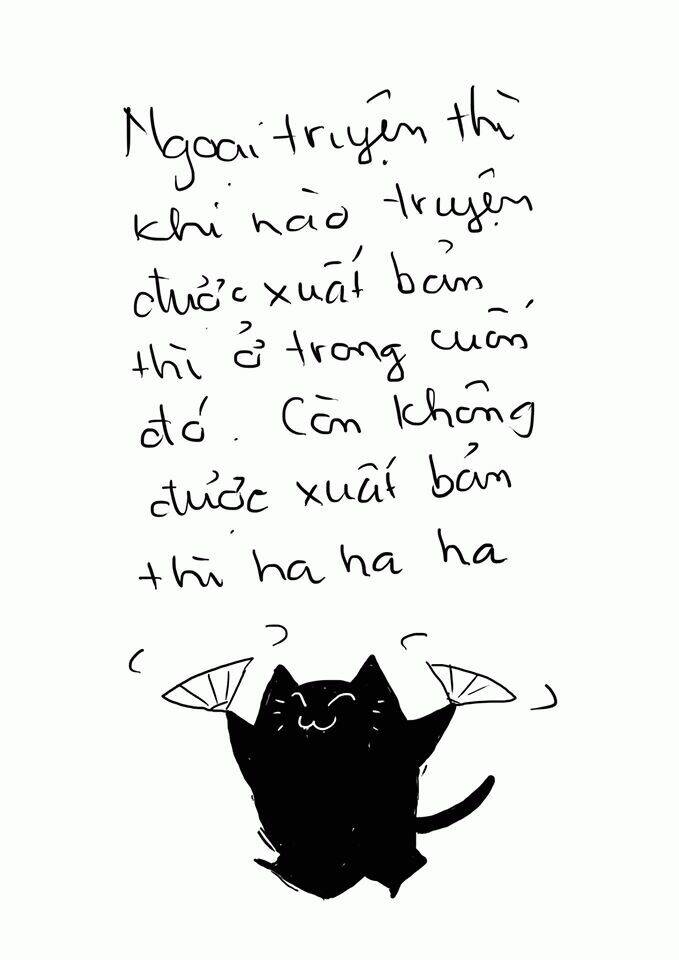 Ngoại truyện thì
khi nào truyện
được xuất bản
thì ở trong cuốn
đó. Còn không
được xuất bản
thì ha ha ha